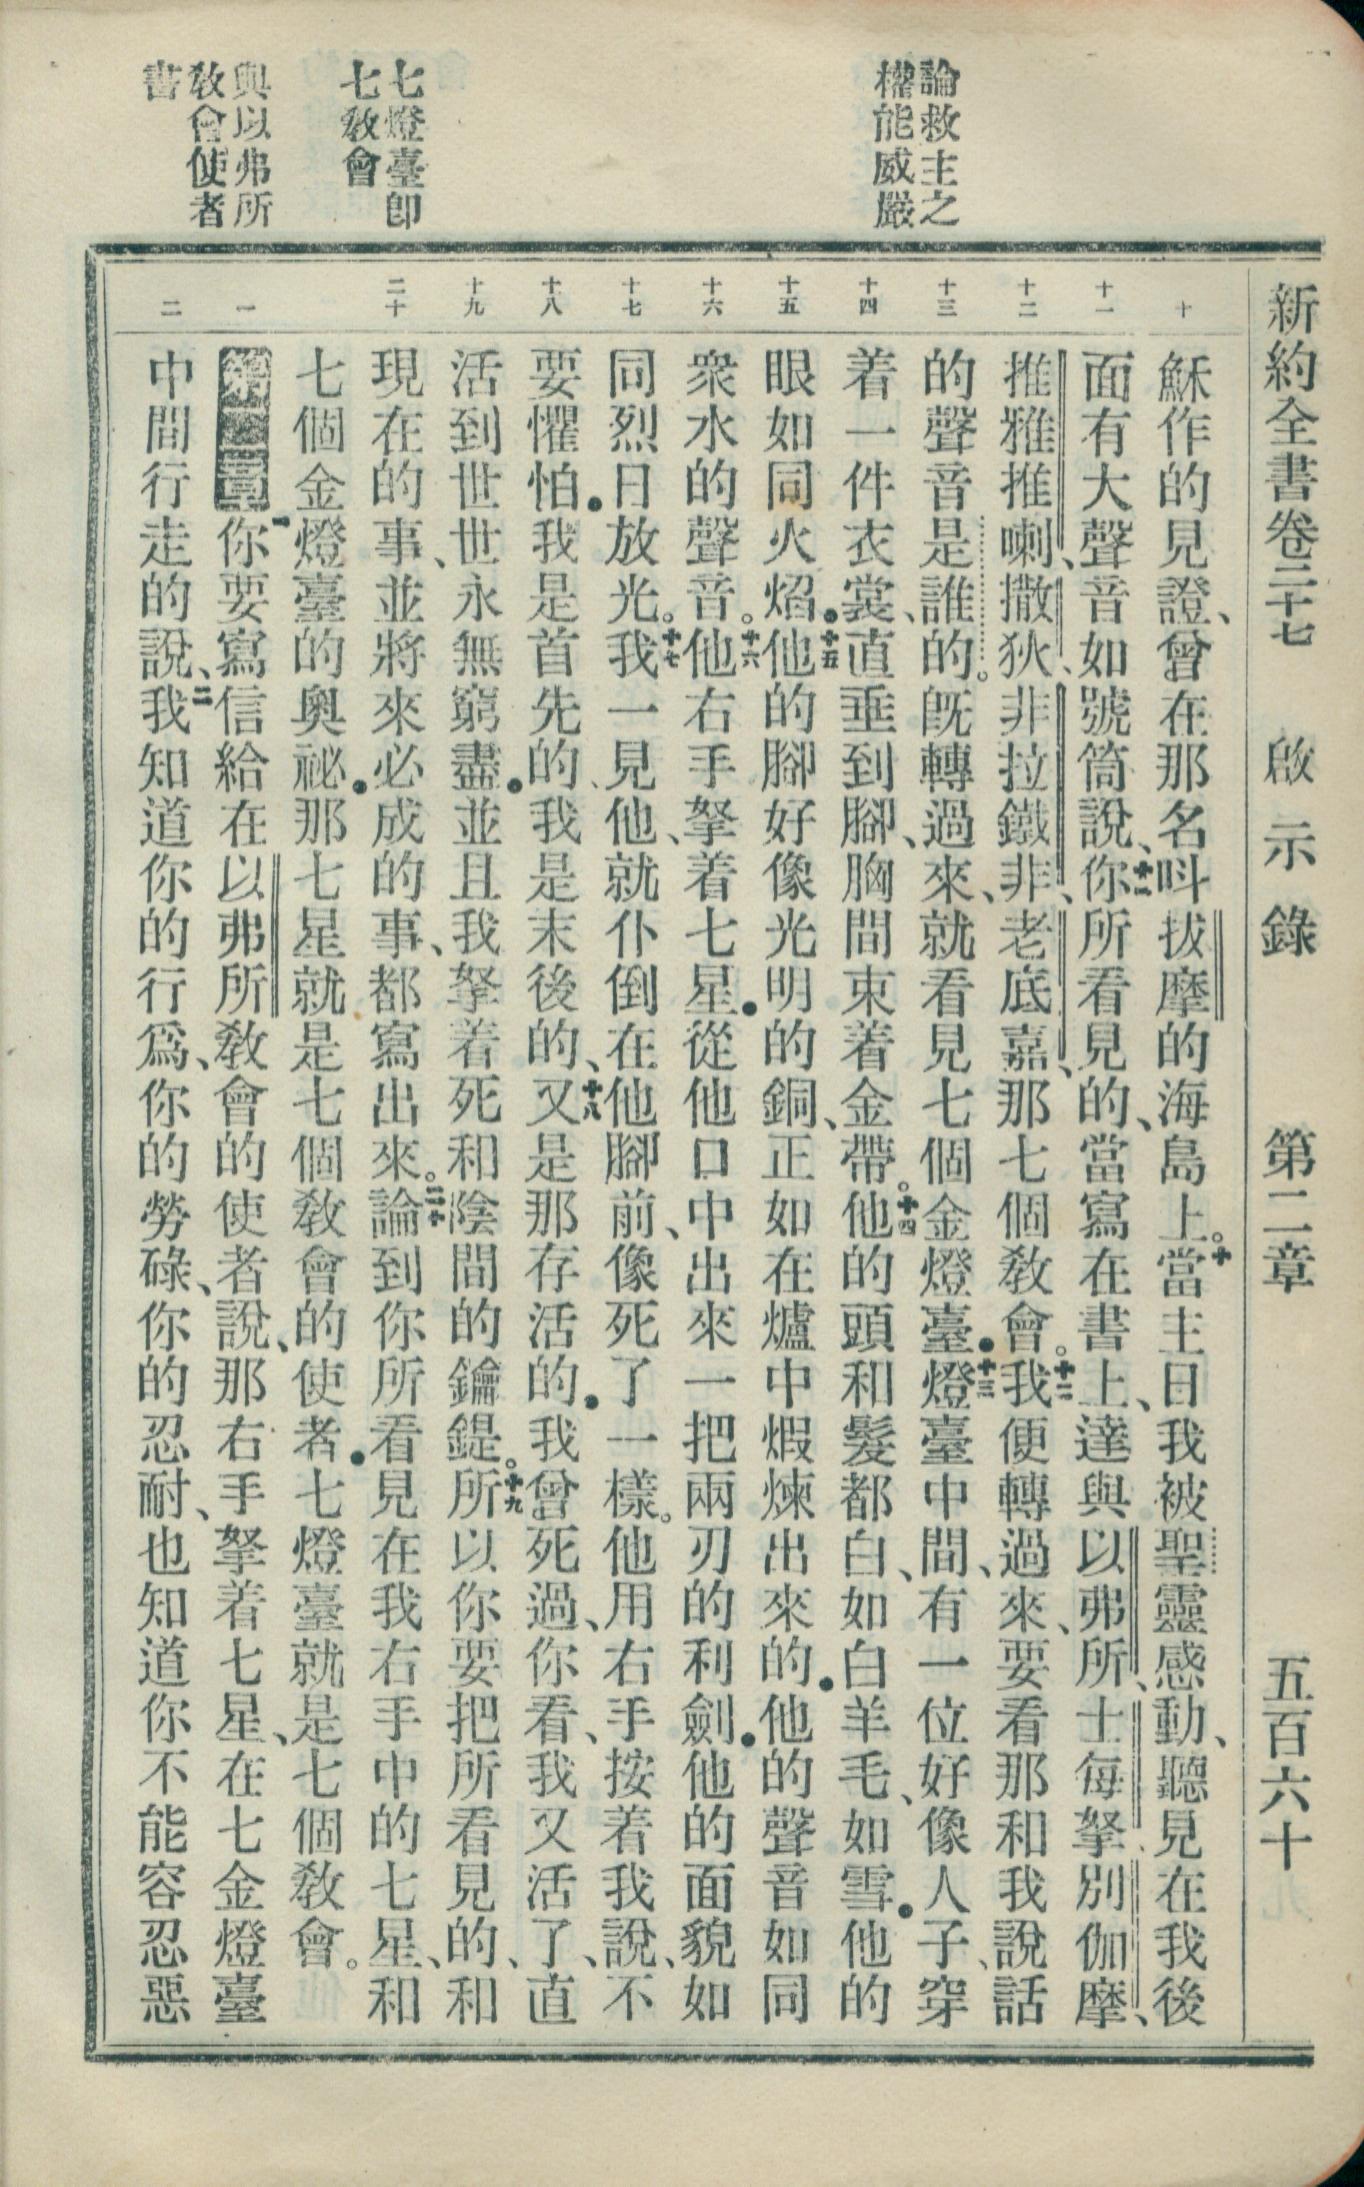 新約全書卷二十七 啟示錄 第二章 五百六十
論救主之
權能威嚴
七燈臺即
七敎會
與以弗所
敎會使者
書
十 十一 十二 十三 十四 十五 十六 十七 十八 十九 二十 一 二
穌作的見證、曾在那名呌拔摩的海島上。十當主日我被聖靈感動、聽見在我後
面有大聲音如號筒說、十一你所看見的、當寫在書上、達與以弗所、士每拏、別伽摩、
推雅推喇、撒狄、非拉鐵非、老底嘉、那七個敎會。十二我便轉過來、要看那和我說話
的聲音是誰的。旣轉過來、就看見七個金燈臺．十三燈臺中間、有一位好像人子、穿
着一件衣裳、直垂到腳、胸間束着金帶。十四他的頭和髮都白、如白羊毛、如雪．他的
眼如同火焰．十五他的腳好像光明的銅、正如在爐中煆煉出來的．他的聲音如同
衆水的聲音。十六他右手拏着七星．從他口中出來一把兩刃的利劍．他的面貌如
同烈日放光。十七我一見他、就仆倒在他腳前、像死了一樣。他用右手按着我說、不
要懼怕．我是首先的、我是末後的、十八又是那存活的．我曾死過、你看、我又活了、直
活到世世永無窮盡．並且我拏着死和陰間的鑰鍉。十九所以你要把所看見的、和
現在的事、並將來必成的事、都寫出來。二十論到你所看見在我右手中的七星、和
七個金燈臺的奧祕．那七星就是七個敎會的使者．七燈臺就是七個敎會。
第二章 一你要寫信給在以弗所敎會的使者說、那右手拏着七星、在七金燈臺
中間行走的說、二我知道你的行爲、你的勞碌、你的忍耐、也知道你不能容忍惡